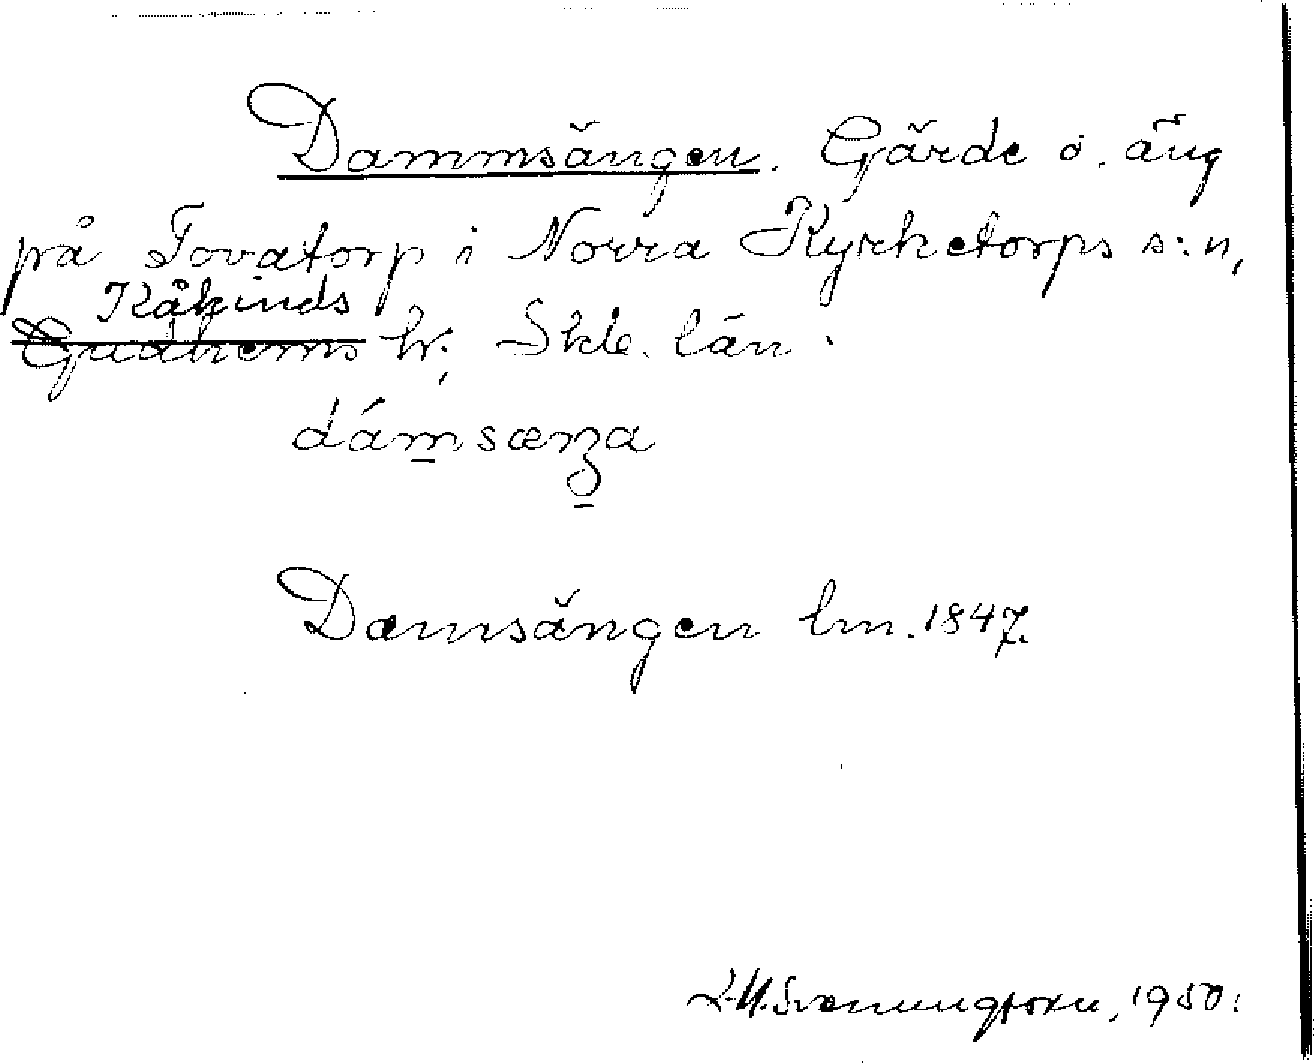 Dammsängen. Gärde o. äng
på Tovatorp i Norra Kyrketorps s:n,
Kåkinds
Gudhems hr, Skbg. län.
dámsæŋa
Damsängen lm. 1847.
Svenungsson, 1950.